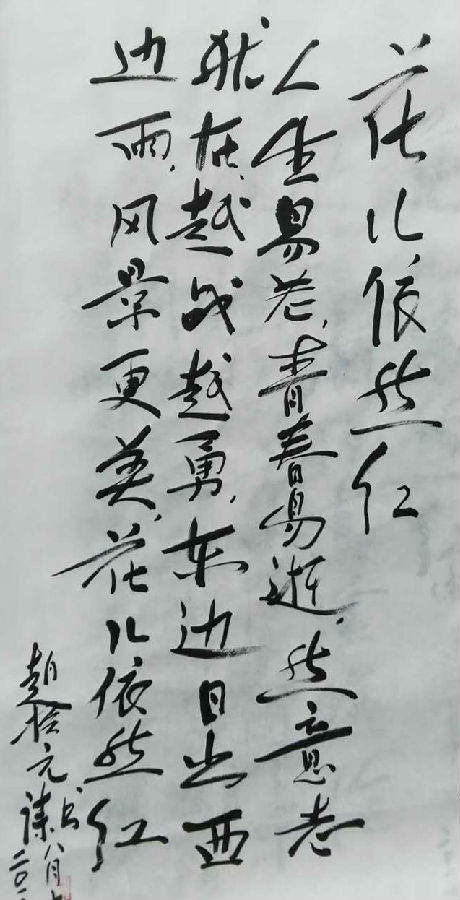 花儿依然红
人生易老,青春易逝,然意志
犹在,越战越勇,东边日出西
边雨,风景更美,花儿依然红
元诗书
八月
二〇一